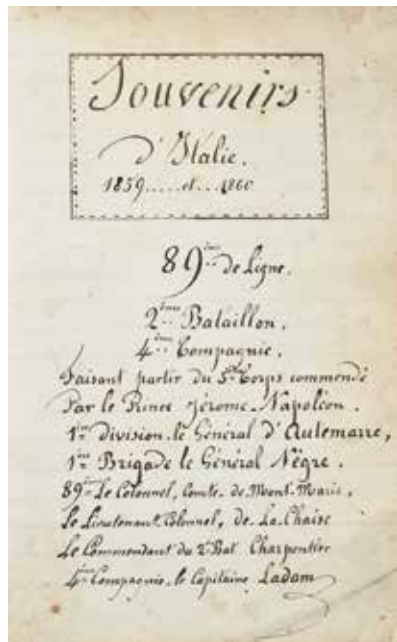 Souvenirs
d'Italie.
1859.....et...1860
89ème de Ligne.
2ème Bataillon.
4ème Compagnie.
Faisant partir du 5e Corps commendé
Par le Prince Jérome-Napoléon.
1ère Division. le Général d'Autemarre,
1ère Brigade le Général Nègre.
89e Le Colonnel, Comte. de Mont-Maris.
Le Lieutenant Colonnel, de La Chaise
Le Commendant du 2e Bat. Charpentier
4e Compagnie. le Capitaine Ladam